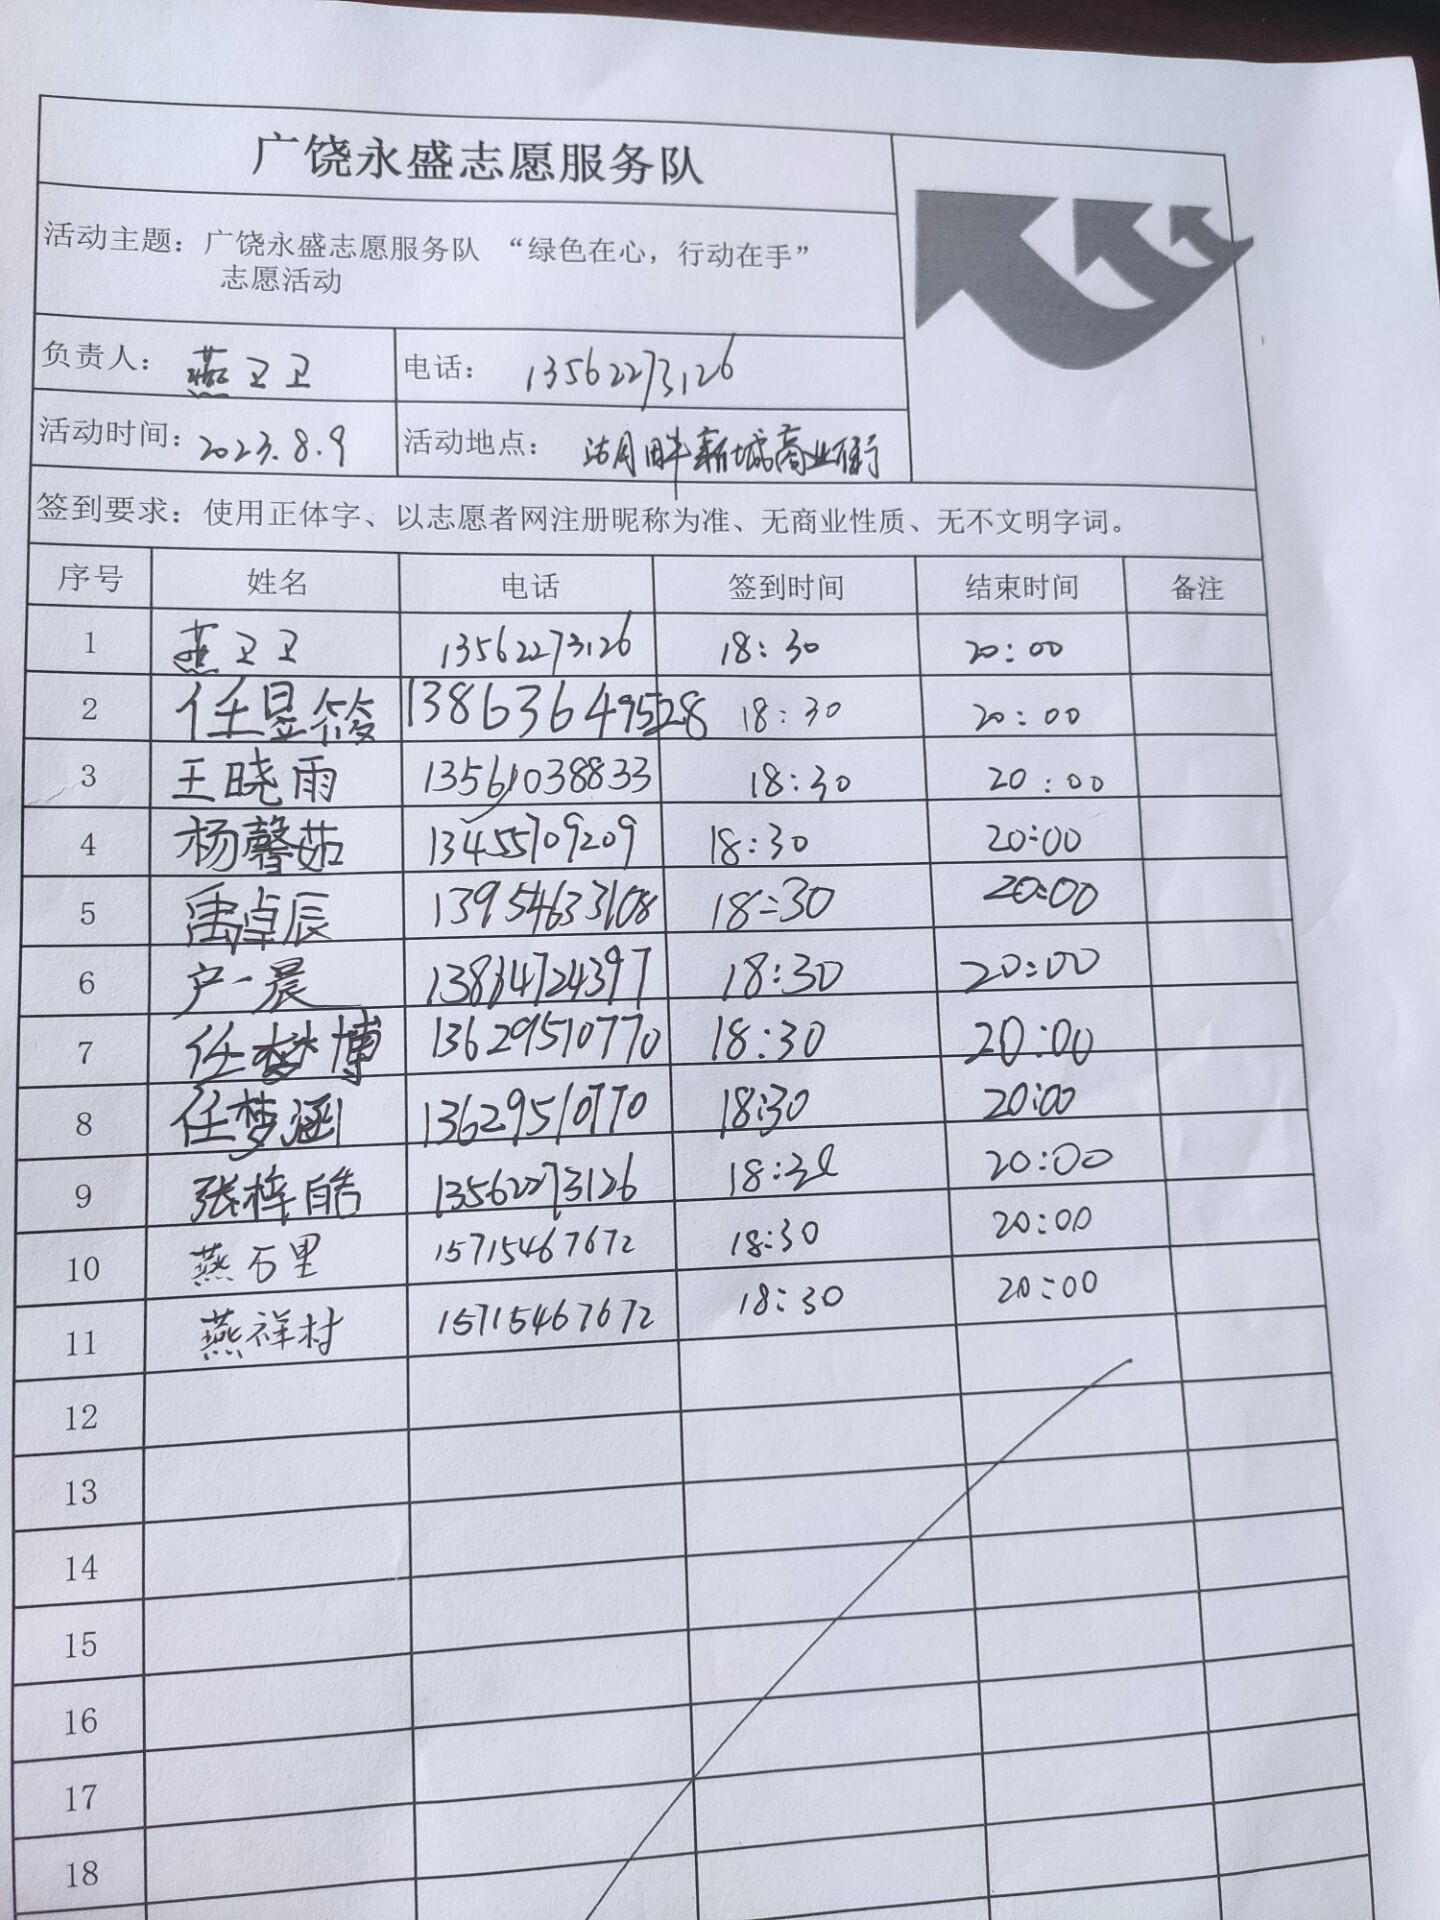 广饶永盛志愿服务队
活动主题：广饶永盛志愿服务队 “绿色在心，行动在手”
志愿活动
负责人： 燕卫卫 电话： 13562273126
活动时间： 2023.8.9 活动地点： 新城商业街
签到要求：使用正体字、以志愿者网注册昵称为准、无商业性质、无不文明字词。
序号 姓名 电话 签到时间 结束时间 备注
1 燕卫卫 13562273126 18:30 20:00
2 任昱筱 13863649528 18:30 20:00
3 王晓雨 13561038833 18:30 20:00
4 杨馨茹 13455709209 18:30 20:00
5 禹卓辰 13954633108 18:30 20:00
6 户一晨 18:30 20:00
7 任梦博 13629510770 18:30 20:00
8 任梦涵 13629510770 18:30 20:00
9 张梓皓 13562273126 18:30 20:00
10 燕石里 15715467672 18:30 20:00
11 燕祥村 15715467672 18:30 20:00
12
13
14
15
16
17
18